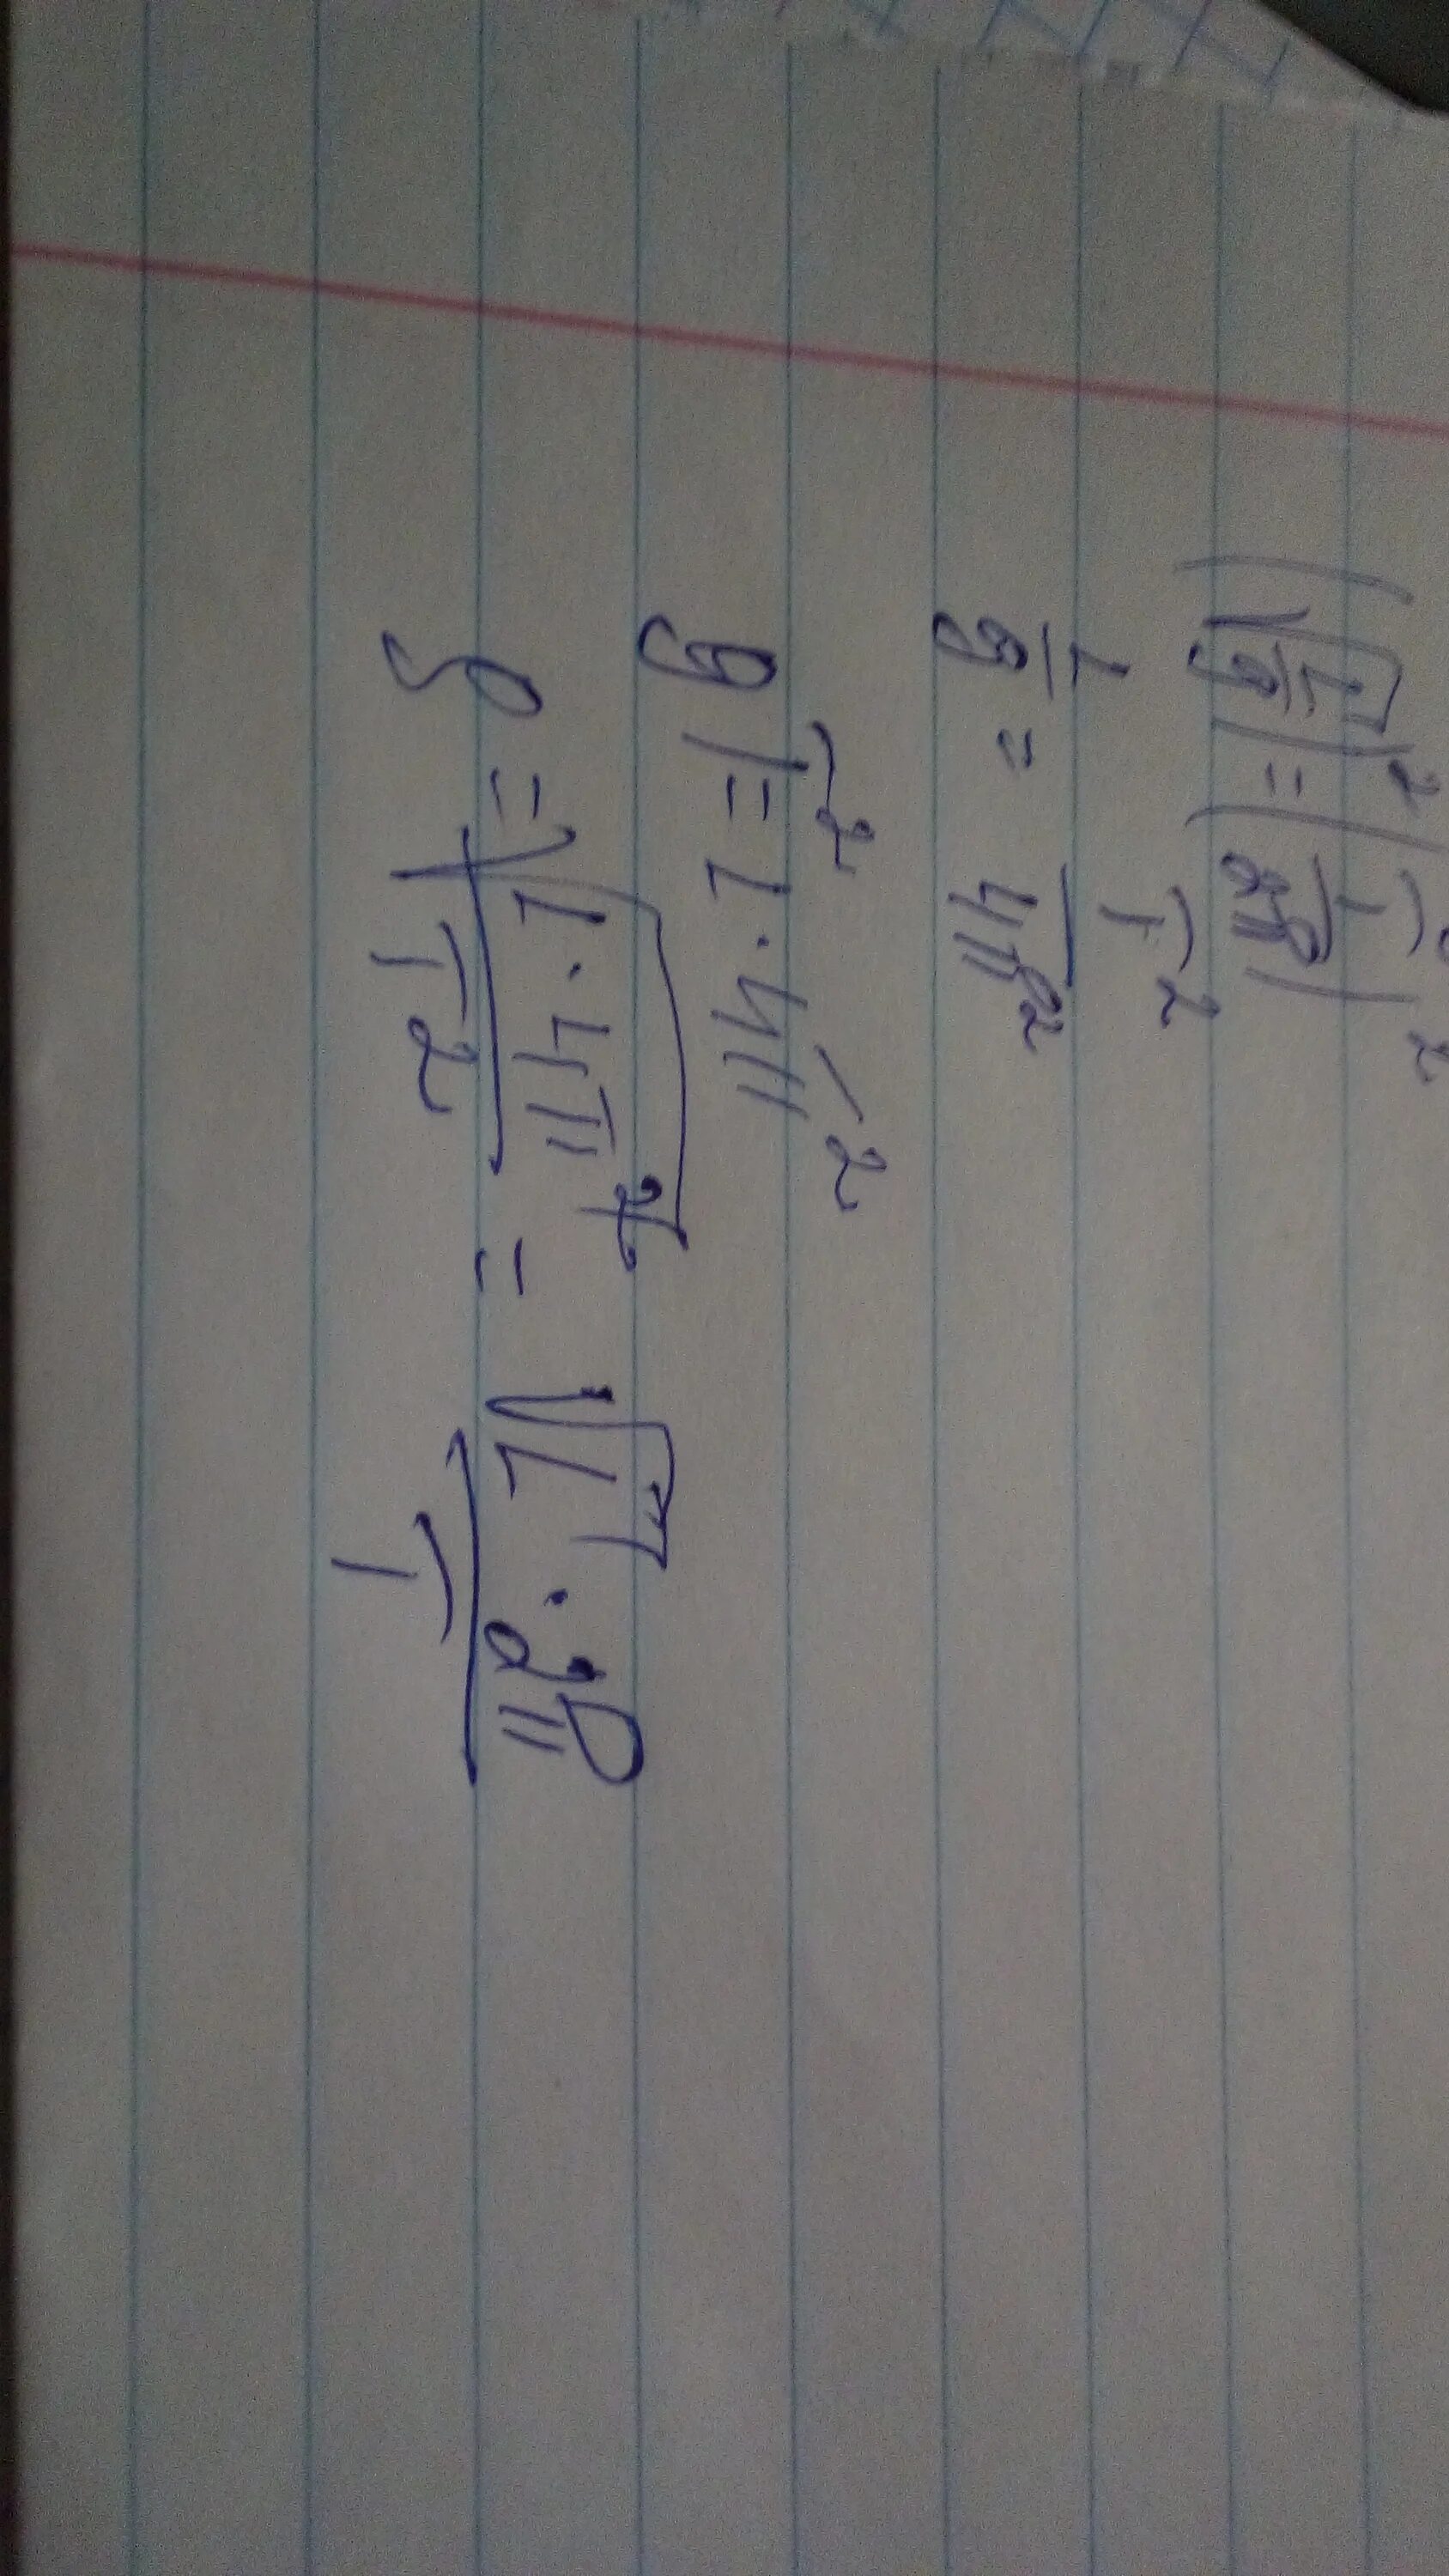 (√(L/g))² = (T/2π)²
L/g = T²/4π²
gT² = L·4π²
g = √(L·4π²)/T² = √L·2π/T